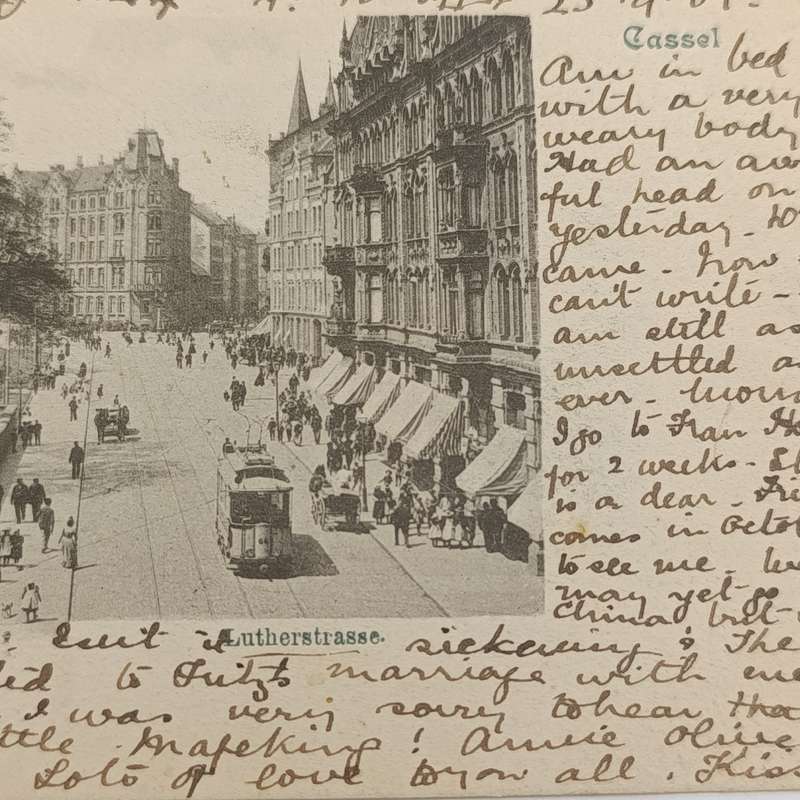 Cassel
Am in bed
with a very
weary body
Had an aw
ful head on
yesterday -
came - How
can't write -
am still as
unsettled as
ever -
I go to Frau
for 2 weeks -
is a dear -
comes in Octo
to see me -
may yet go
China, but
Lutherstrasse.
Isn't it sickening; The
to Fritz's marriage with
I was very sorry to hear
Mafeking! Annie Olive
Lots of love to you all. Kiss